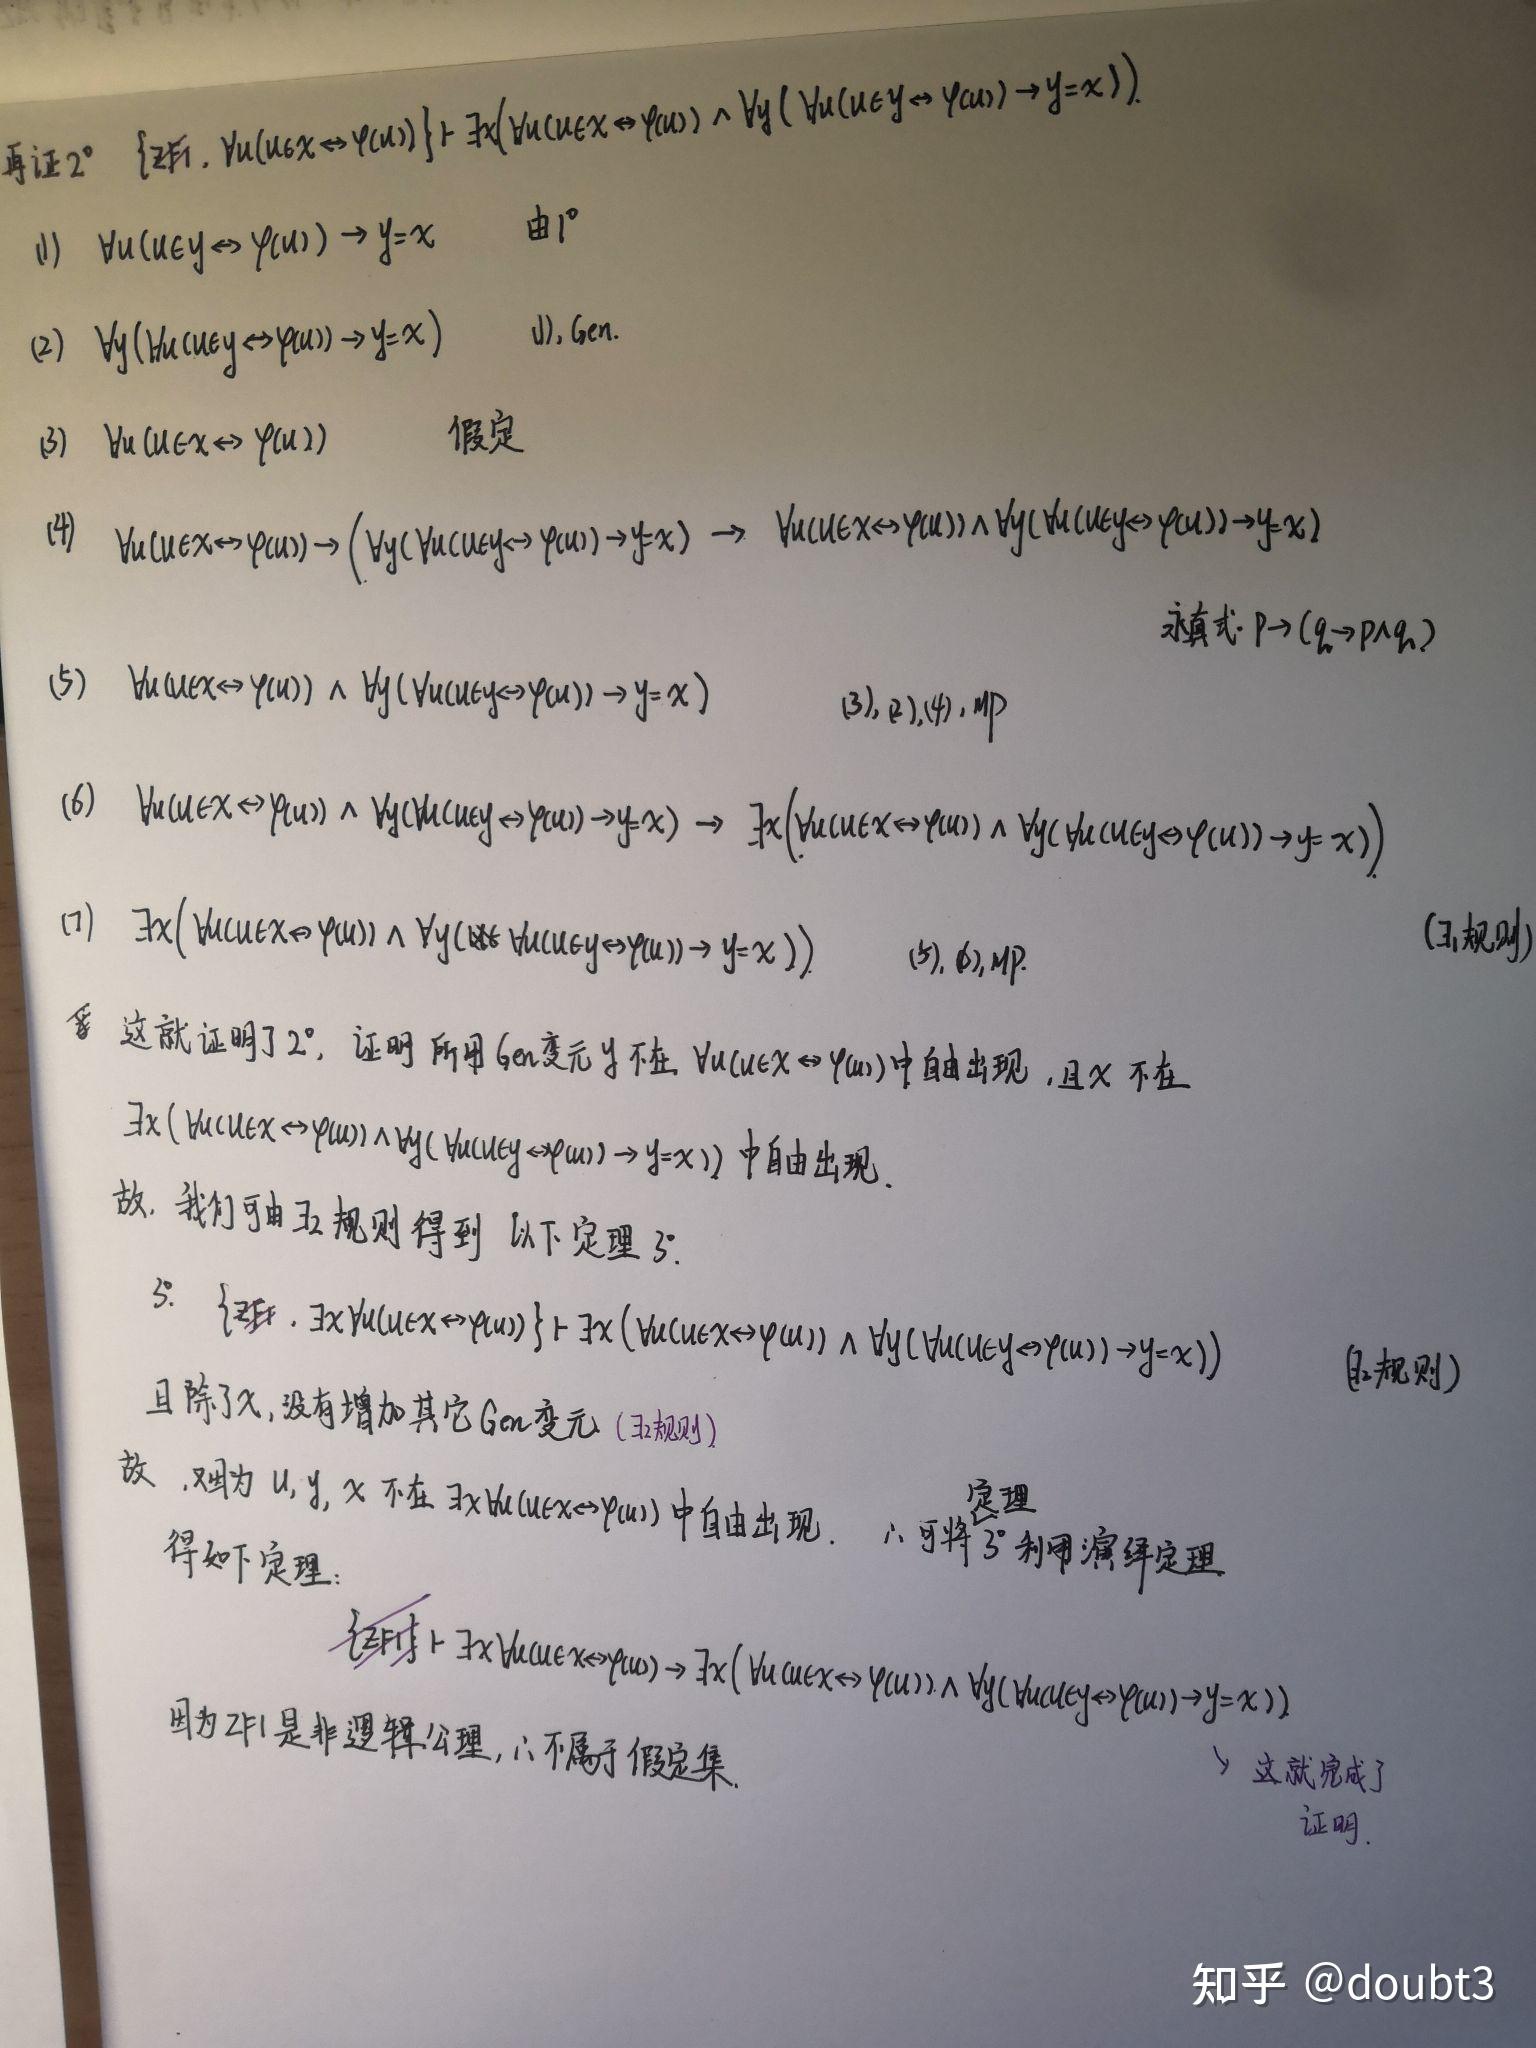 再证2° {ZF1, ∀u(u∈x↔φ(u))}⊢∃x(∀u(u∈x↔φ(u))∧∀y(∀u(u∈y↔φ(u))→y=x)).
(1) ∀u(u∈y↔φ(u))→y=x 由1°
(2) ∀y(∀u(u∈y↔φ(u))→y=x) (1), Gen.
(3) ∀u(u∈x↔φ(u)) 假定
(4) ∀u(u∈x↔φ(u))→(∀y(∀u(u∈y↔φ(u))→y=x) → ∀u(u∈x↔φ(u))∧∀y(∀u(u∈y↔φ(u))→y=x)
永真式. p→(q→p∧q)
(5) ∀u(u∈x↔φ(u)) ∧ ∀y(∀u(u∈y↔φ(u))→y=x) (3),(2),(4), MP
(6) ∀u(u∈x↔φ(u)) ∧ ∀y(∀u(u∈y↔φ(u))→y=x) → ∃x(∀u(u∈x↔φ(u)) ∧ ∀y(∀u(u∈y↔φ(u))→y=x))
(∃1规则)
(7) ∃x(∀u(u∈x↔φ(u)) ∧ ∀y(∀u(u∈y↔φ(u))→y=x)) (5), (6), MP.
这就证明了2°, 证明所用Gen变元y不在 ∀u(u∈x↔φ(u))中自由出现, 且x不在
∃x(∀u(u∈x↔φ(u))∧∀y(∀u(u∈y↔φ(u))→y=x)) 中自由出现.
故, 我们可由∃2规则得到 以下定理3°.
3°. {ZF1, ∃x∀u(u∈x↔φ(u))}⊢∃x(∀u(u∈x↔φ(u)) ∧ ∀y(∀u(u∈y↔φ(u))→y=x)) (∃2规则)
且除了x, 没有增加其它Gen变元 (∃2规则)
故, 又因为 u, y, x 不在 ∃x∀u(u∈x↔φ(u))中自由出现. ∴可将定理3°利用演绎定理
得如下定理:
{ZF1}⊢∃x∀u(u∈x↔φ(u))→∃x(∀u(u∈x↔φ(u))∧∀y(∀u(u∈y↔φ(u))→y=x))
因为ZF1是非逻辑公理, ∴不属于假定集.
↘ 这就完成了
证明.
知乎 @doubt3